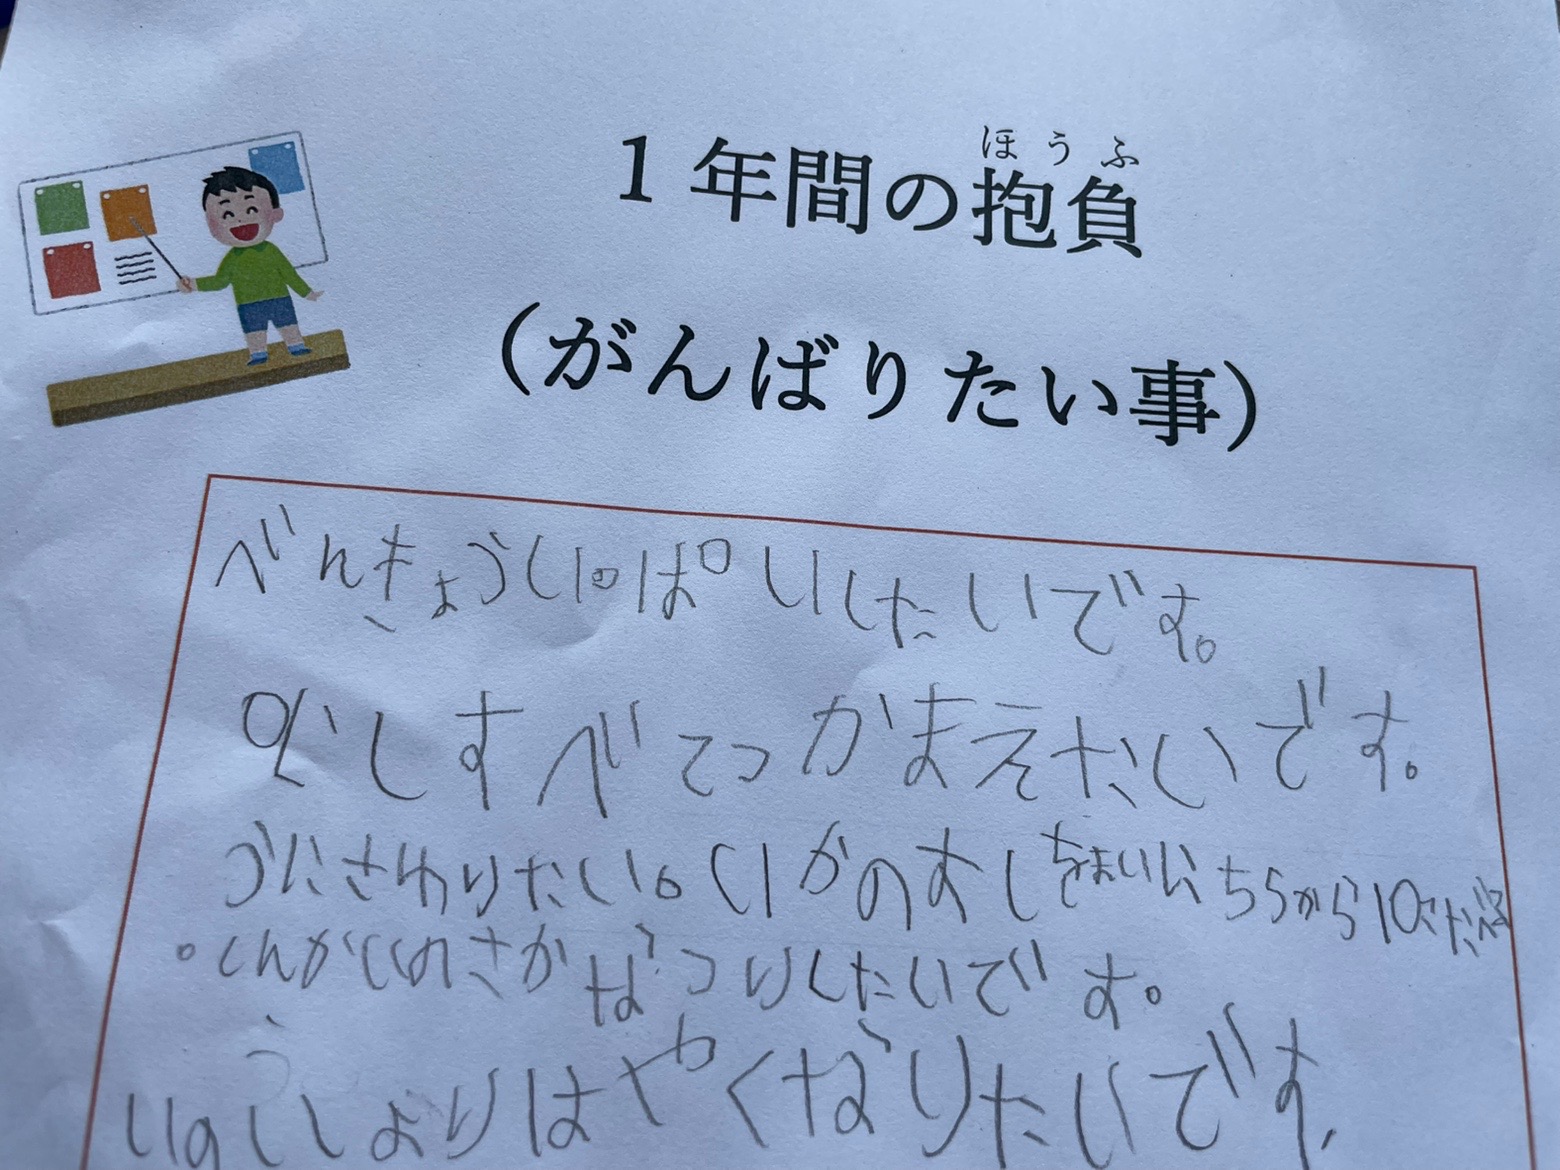 ほうふ
1年間の抱負
(がんばりたい事)
べんきょういっぱいしたいです。
むしすべてつかまえたいです。
うにさわりたい。いかのすしをまいにちらから10こたべる
。しんがしのさかなつりしたいです。
いのししよりはやくなりたいです。